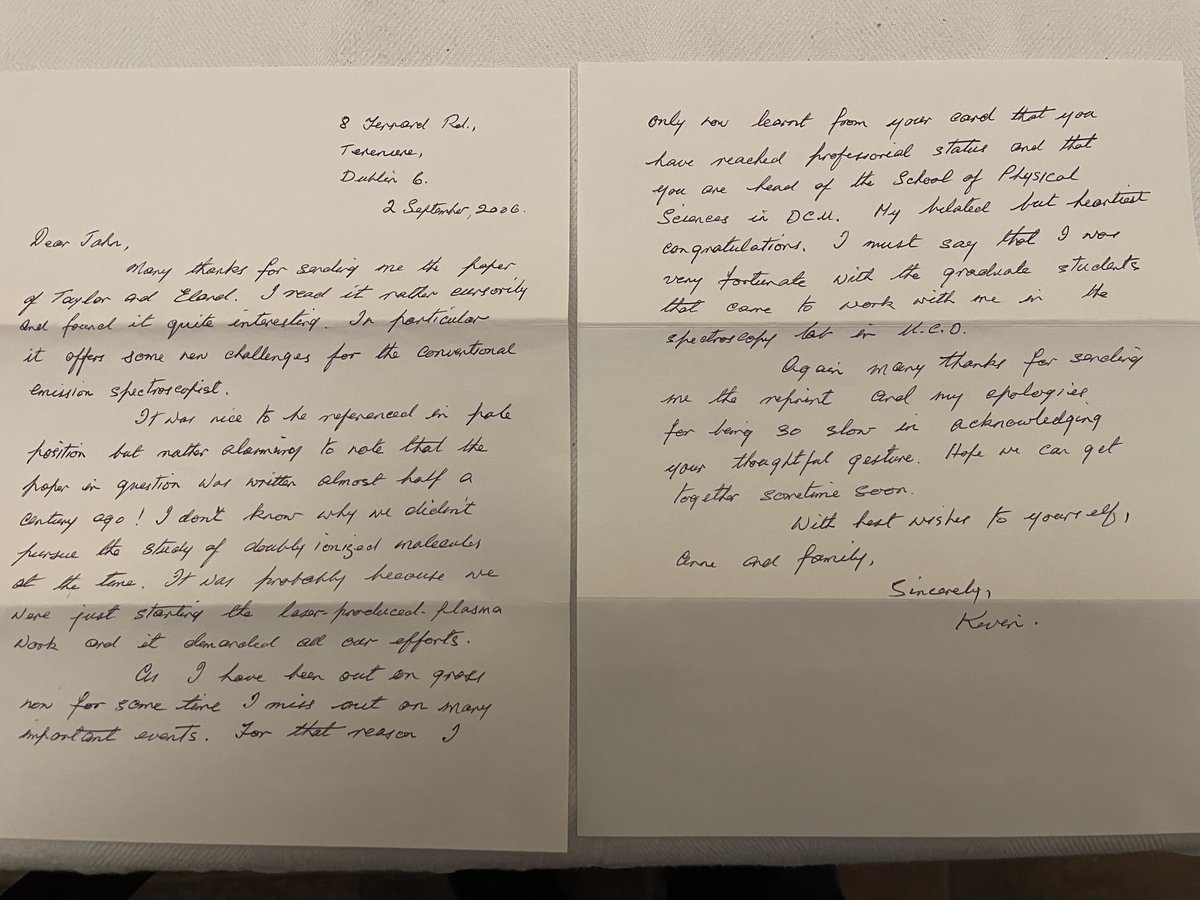 8 Ferrard Rd.,
Terenure,
Dublin 6.
2 September, 2006.
Dear John,
Many thanks for sending me the paper
of Taylor and Eland. I read it rather cursorily
and found it quite interesting. In particular
it offers some new challenges for the conventional
emission spectroscopist.
It was nice to be referenced in pole
position but rather alarming to note that the
paper in question was written almost half a
century ago! I don't know why we didn't
pursue the study of doubly ionized molecules
at the time. It was probably because we
were just starting the laser-produced-plasma
work and it demanded all our efforts.
As I have been out on grass
now for some time I miss out on many
important events. For that reason I
only now learnt from your card that you
have reached professorial status and that
you are head of the School of Physical
Sciences in DCU. My belated but heartiest
congratulations. I must say that I was
very fortunate with the graduate students
that came to work with me in the
spectroscopy lab in U.C.D.
Again many thanks for sending
me the reprint and my apologies
for being so slow in acknowledging
your thoughtful gesture. Hope we can get
together sometime soon.
With best wishes to yourself,
Anne and family,
Sincerely,
Kevin.